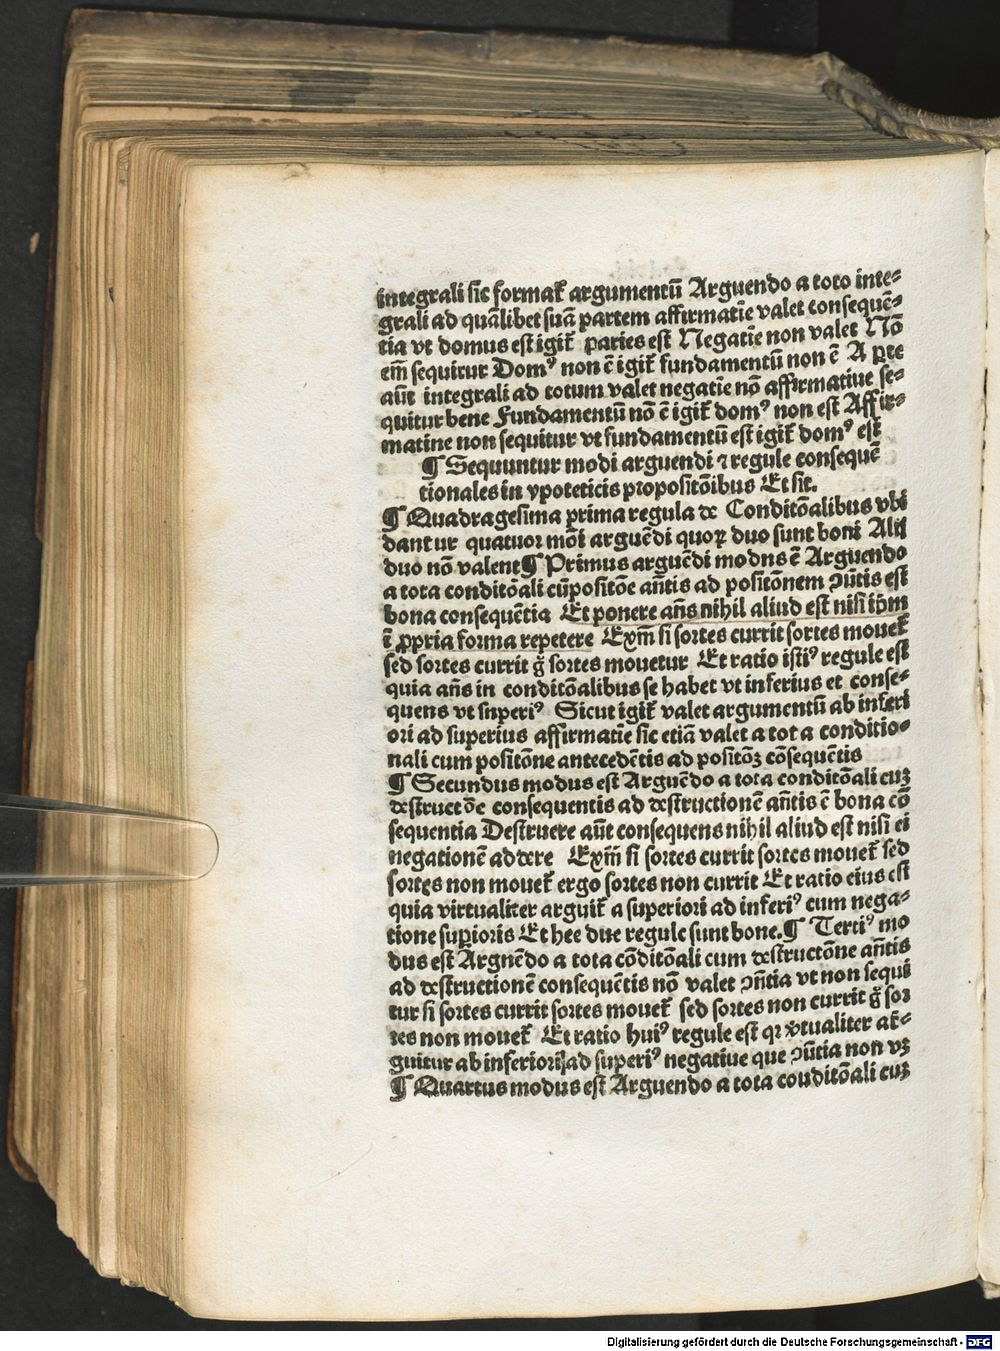 integrali sic format᷑ argumentū Arguendo a toto inte⸗
grali ad quālibet suā partem affirmatīe valet consequē⸗
tia vt domus est igit᷑ paries est Negatīe non valet Nō
em̄ sequitur Domꝰ non ē igit᷑ fundamentū non ē A ꝑte
aūt integrali ad totum valet negatīe nō affirmatiue se⸗
quitur bene Fundamentū nō ē igit᷑ domꝰ non est Affir⸗
matine non sequitur vt fundamentū est igit᷑ domꝰ est
¶ Sequuntur modi arguendi ⁊ regule consequē
tionales in ypoteticis propositōibus Et sit.
¶ Quadragesima prima regula de Conditōalibus vbi
dantur quatuor mōi arguēdi quoꝝ duo sunt boni Alij
duo nō valent ¶ Primus arguēdi modns ē Arguendo
a tota conditōali cū positōe an̄tis ad positōnem ꝯn̄tis est
bona consequētia Et ponere an̄s nihil aliud est nisi ip̄m
ī ꝓpria forma repetere Exm̄ si sortes currit sortes mouet᷑
sed sortes currit g̊ sortes mouetur Et ratio istiꝰ regule est
quia an̄s in conditōalibus se habet vt inferius et conse⸗
quens vt snperiꝰ Sicut igit᷑ valet argumentū ab inferi
ori ad superius affirmatīe sic etiā valet a tota conditio⸗
nali cum positōne antecedētis ad positōꝫ cōsequētis
¶ Secundus modus est Arguēdo a tota conditōali cuꝫ
destructōe consequentis ad destructionē an̄tis ē bona cō
sequentia Destruere aūt consequens nihil aliud est nisi ei
negationē addere Exm̄ si sortes currit sortes mouet᷑ sed
sortes non mouet᷑ ergo sortes non currit Et ratio eius est
quia virtualiter arguit᷑ a superiori ad inferiꝰ cum nega⸗
tione suꝑioris Et hee due regule sunt bone. ¶ Tertiꝰ mo
dus est Argnēdo a tota cōditōali cum destructōne an̄tis
ad destructionē consequētis nō valet ꝯn̄tia vt non sequi
tur si sortes currit sortes mouet᷑ sed sortes non currit g̊ sor
tes non mouet᷑ Et ratio huiꝰ regule est qꝛ v̓tualiter ar⸗
guitur ab inferiori ad superiꝰ negatiue que ꝯn̄tia non vꝫ
¶ Quartus modus est Arguendo a tota couditōali cuꝫ
Digitalisierung gefördert durch die Deutsche Forschungsgemeinschaft - DFG